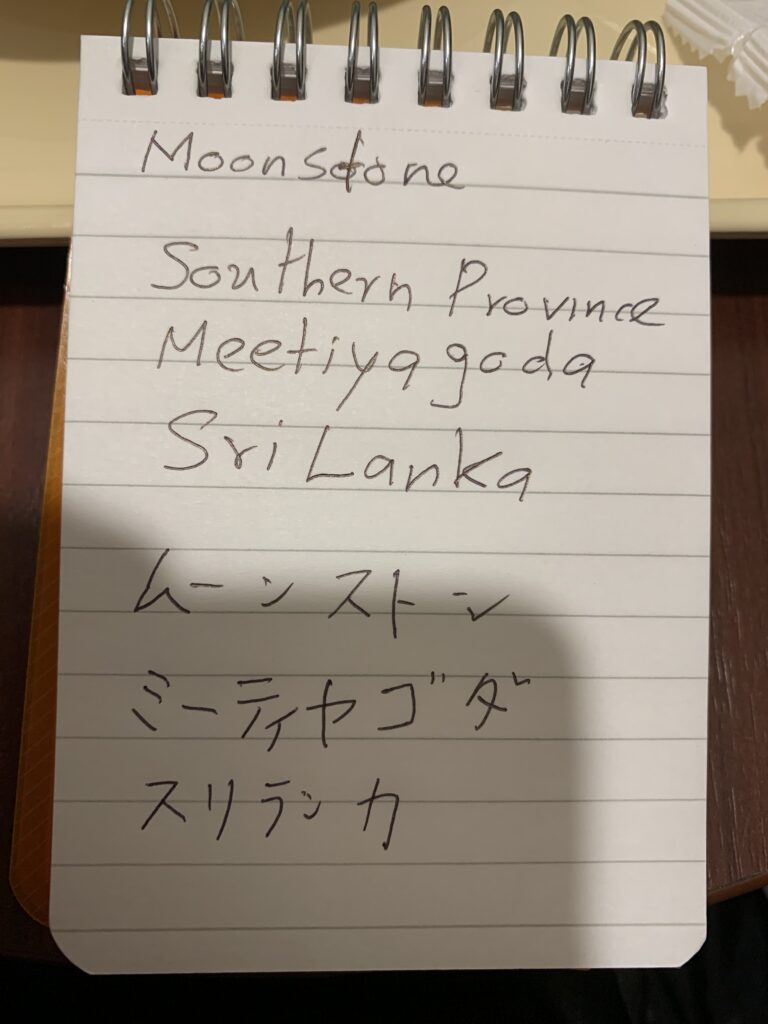 Moonstone
Southern Province
Meetiyagoda
Sri Lanka
ムーンストーン
ミーティヤゴダ
スリランカ